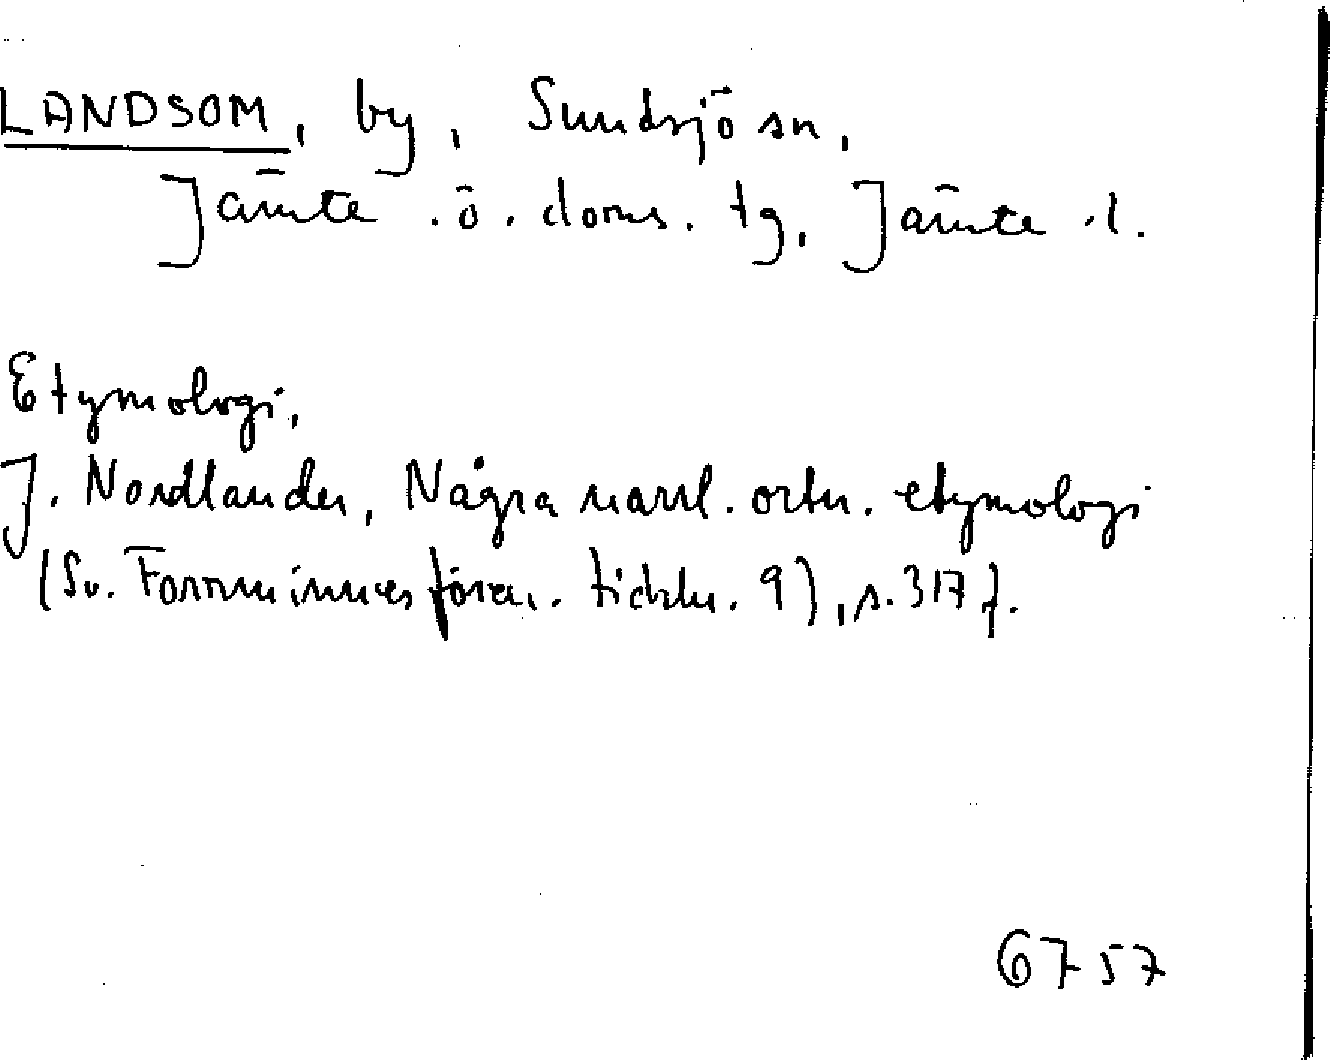 LANDSOM, by, Sundsjö sn,
Jämte. ö. doms. tg, Jämte. l.
Etymologi,
J. Nordlander, Några norrl. ortn. etymologi
(Sv. Fornminnesfören. tidskr. 9), s. 317 f.
6757